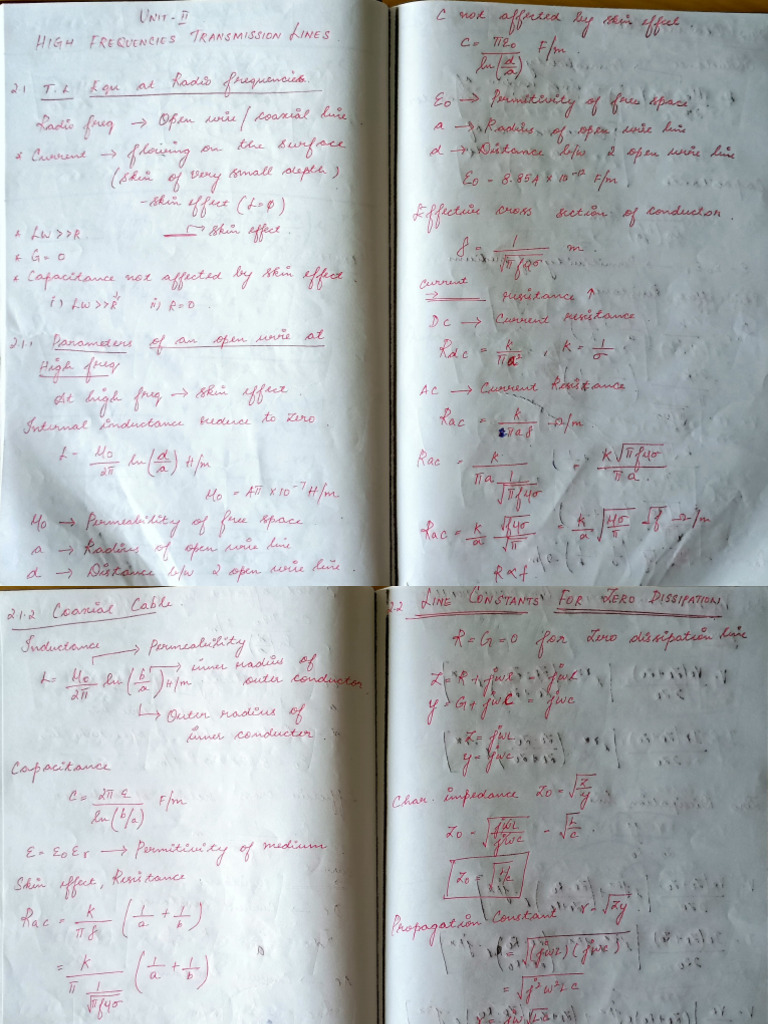 UNIT-II
HIGH FREQUENCIES TRANSMISSION LINES
2.1 T.L Equ at Radio frequencies.
Radio freq → Open wire / coaxial line
* Current → flowing on the surface
(skin of very small depth)
- skin effect (L=0)
* LW >> R
→ skin effect.
* G = 0
* Capacitance not affected by skin effect
i) LW >> R ii) R = 0
2.1.1 Parameters of an open wire at
High freq
At high freq → skin effect.
Internal inductance reduce to zero
L = μ0/2π ln(d/a) H/m
μ0 = 4π × 10⁻⁷ H/m
μ0 → Permeability of free space
a → Radius of open wire line
d → Distance b/w 2 open wire line.
C not affected by skin effect.
C = πε0/ln(d/a) F/m
ε0 → Permitivity of free space
a → Radius of open wire line
d → Distance b/w 2 open wire line
ε0 - 8.854 × 10⁻¹² F/m
Effective cross section of conductor
δ = 1/√πfμσ m
Current
→ resistance ↑
DC → Current resistance
Rdc = k/πa², K = 1/σ
AC → Current Resistance
Rac = k/2πaδ Ω/m
Rac = k/(πa 1/√πfμσ) = k√πfμσ/πa
Rac = k/a √fμσ/√π = k/a √μσ/π √f Ω/m
R ∝ f
2.1.2 Coaxial Cable.
Inductance → Permeability
L = μ0/2π ln(b/a) H/m → inner radius of outer conductor
↳ Outer radius of
inner conductor.
Capacitance
C = 2πε/ln(b/a) F/m
ε = ε0εr → Permitivity of medium
Skin effect, Resistance
Rac = k/πδ (1/a + 1/b)
= k/(π 1/√πfμσ) (1/a + 1/b)
2.2 LINE CONSTANTS FOR ZERO DISSIPATION
R = G = 0 for Zero dissipation line
Z = R + jωL = jωL
y = G + jωC = jωC
Z = jωL
y = jωC
Char. impedance Z0 = √Z/y
Z0 - √jωL/jωC - √L/C
Z0 = √L/C
Propagation Constant γ - √Zy
= √(jωL)(jωC)
= √j²ω²LC
γ = jω√LC